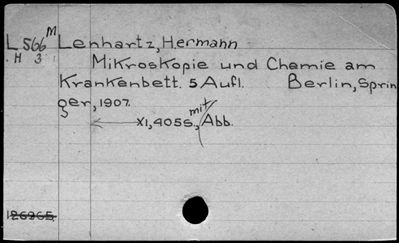 L 566 M Lenhartz, Hermann
H 3 Mikroskopie und Chemie am
Krankenbett. 5 Aufl. Berlin, Sprin
ger, 1907.
XI, 405S., mit Abb.
126965